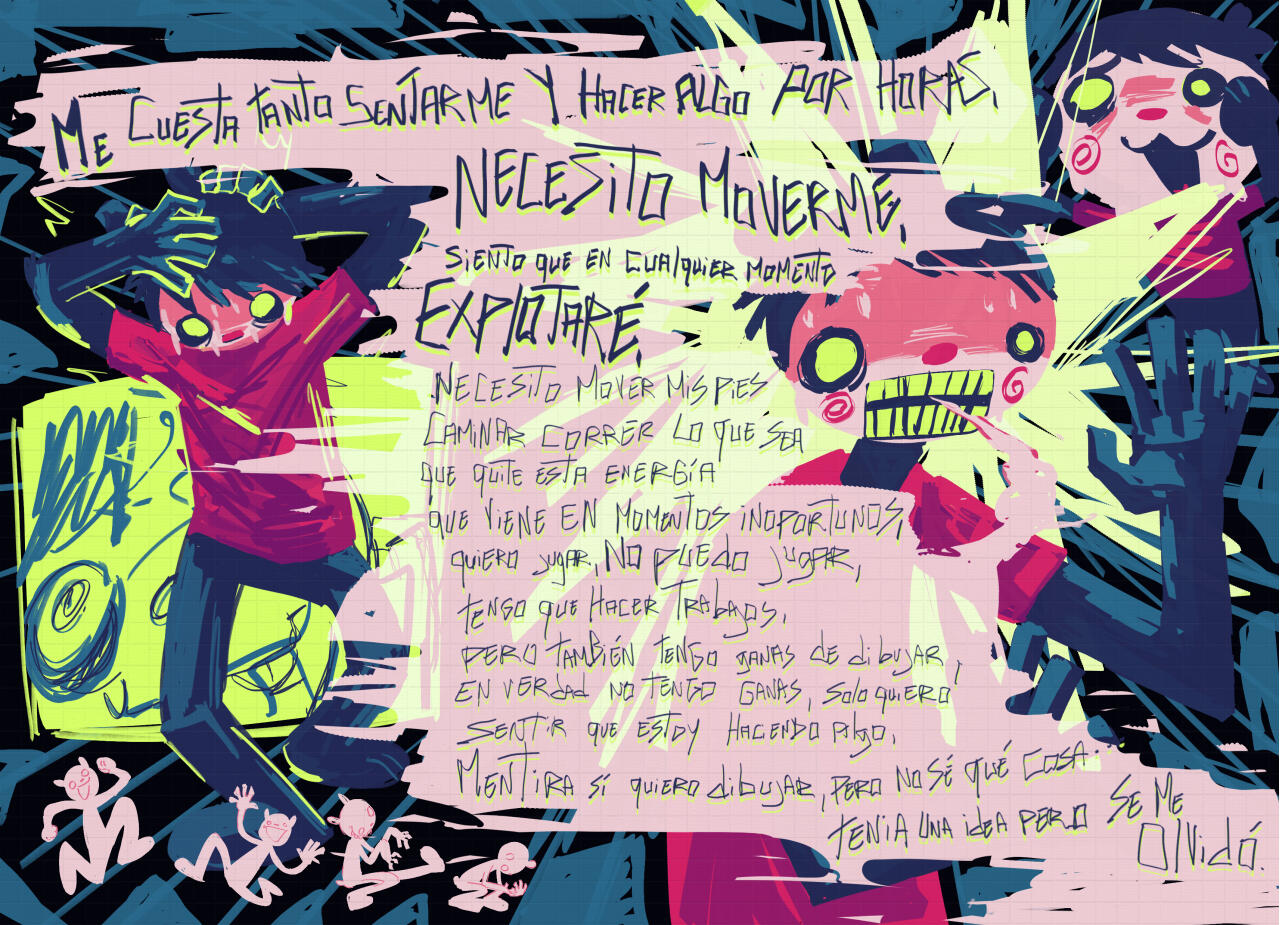 ME CUESTA TANTO SENTARME Y HACER ALGO POR HORAS,
NECESITO MOVERME,
SIENTO QUE EN CUALQUIER MOMENTO
EXPLOTARÉ,
NECESITO MOVER MIS PIES
CAMINAR CORRER LO QUE SEA
QUE QUITE ESTA ENERGÍA
QUE VIENE EN MOMENTOS INOPORTUNOS,
QUIERO JUGAR, NO PUEDO JUGAR,
TENGO QUE HACER TRABAJOS,
PERO TAMBIÉN TENGO GANAS DE DIBUJAR,
EN VERDAD NO TENGO GANAS, SOLO QUIERO
SENTIR QUE ESTOY HACIENDO ALGO,
MENTIRA SÍ QUIERO DIBUJAR, PERO NO SÉ QUÉ COSA...
TENIA UNA IDEA PERO SE ME
OLVIDÓ.